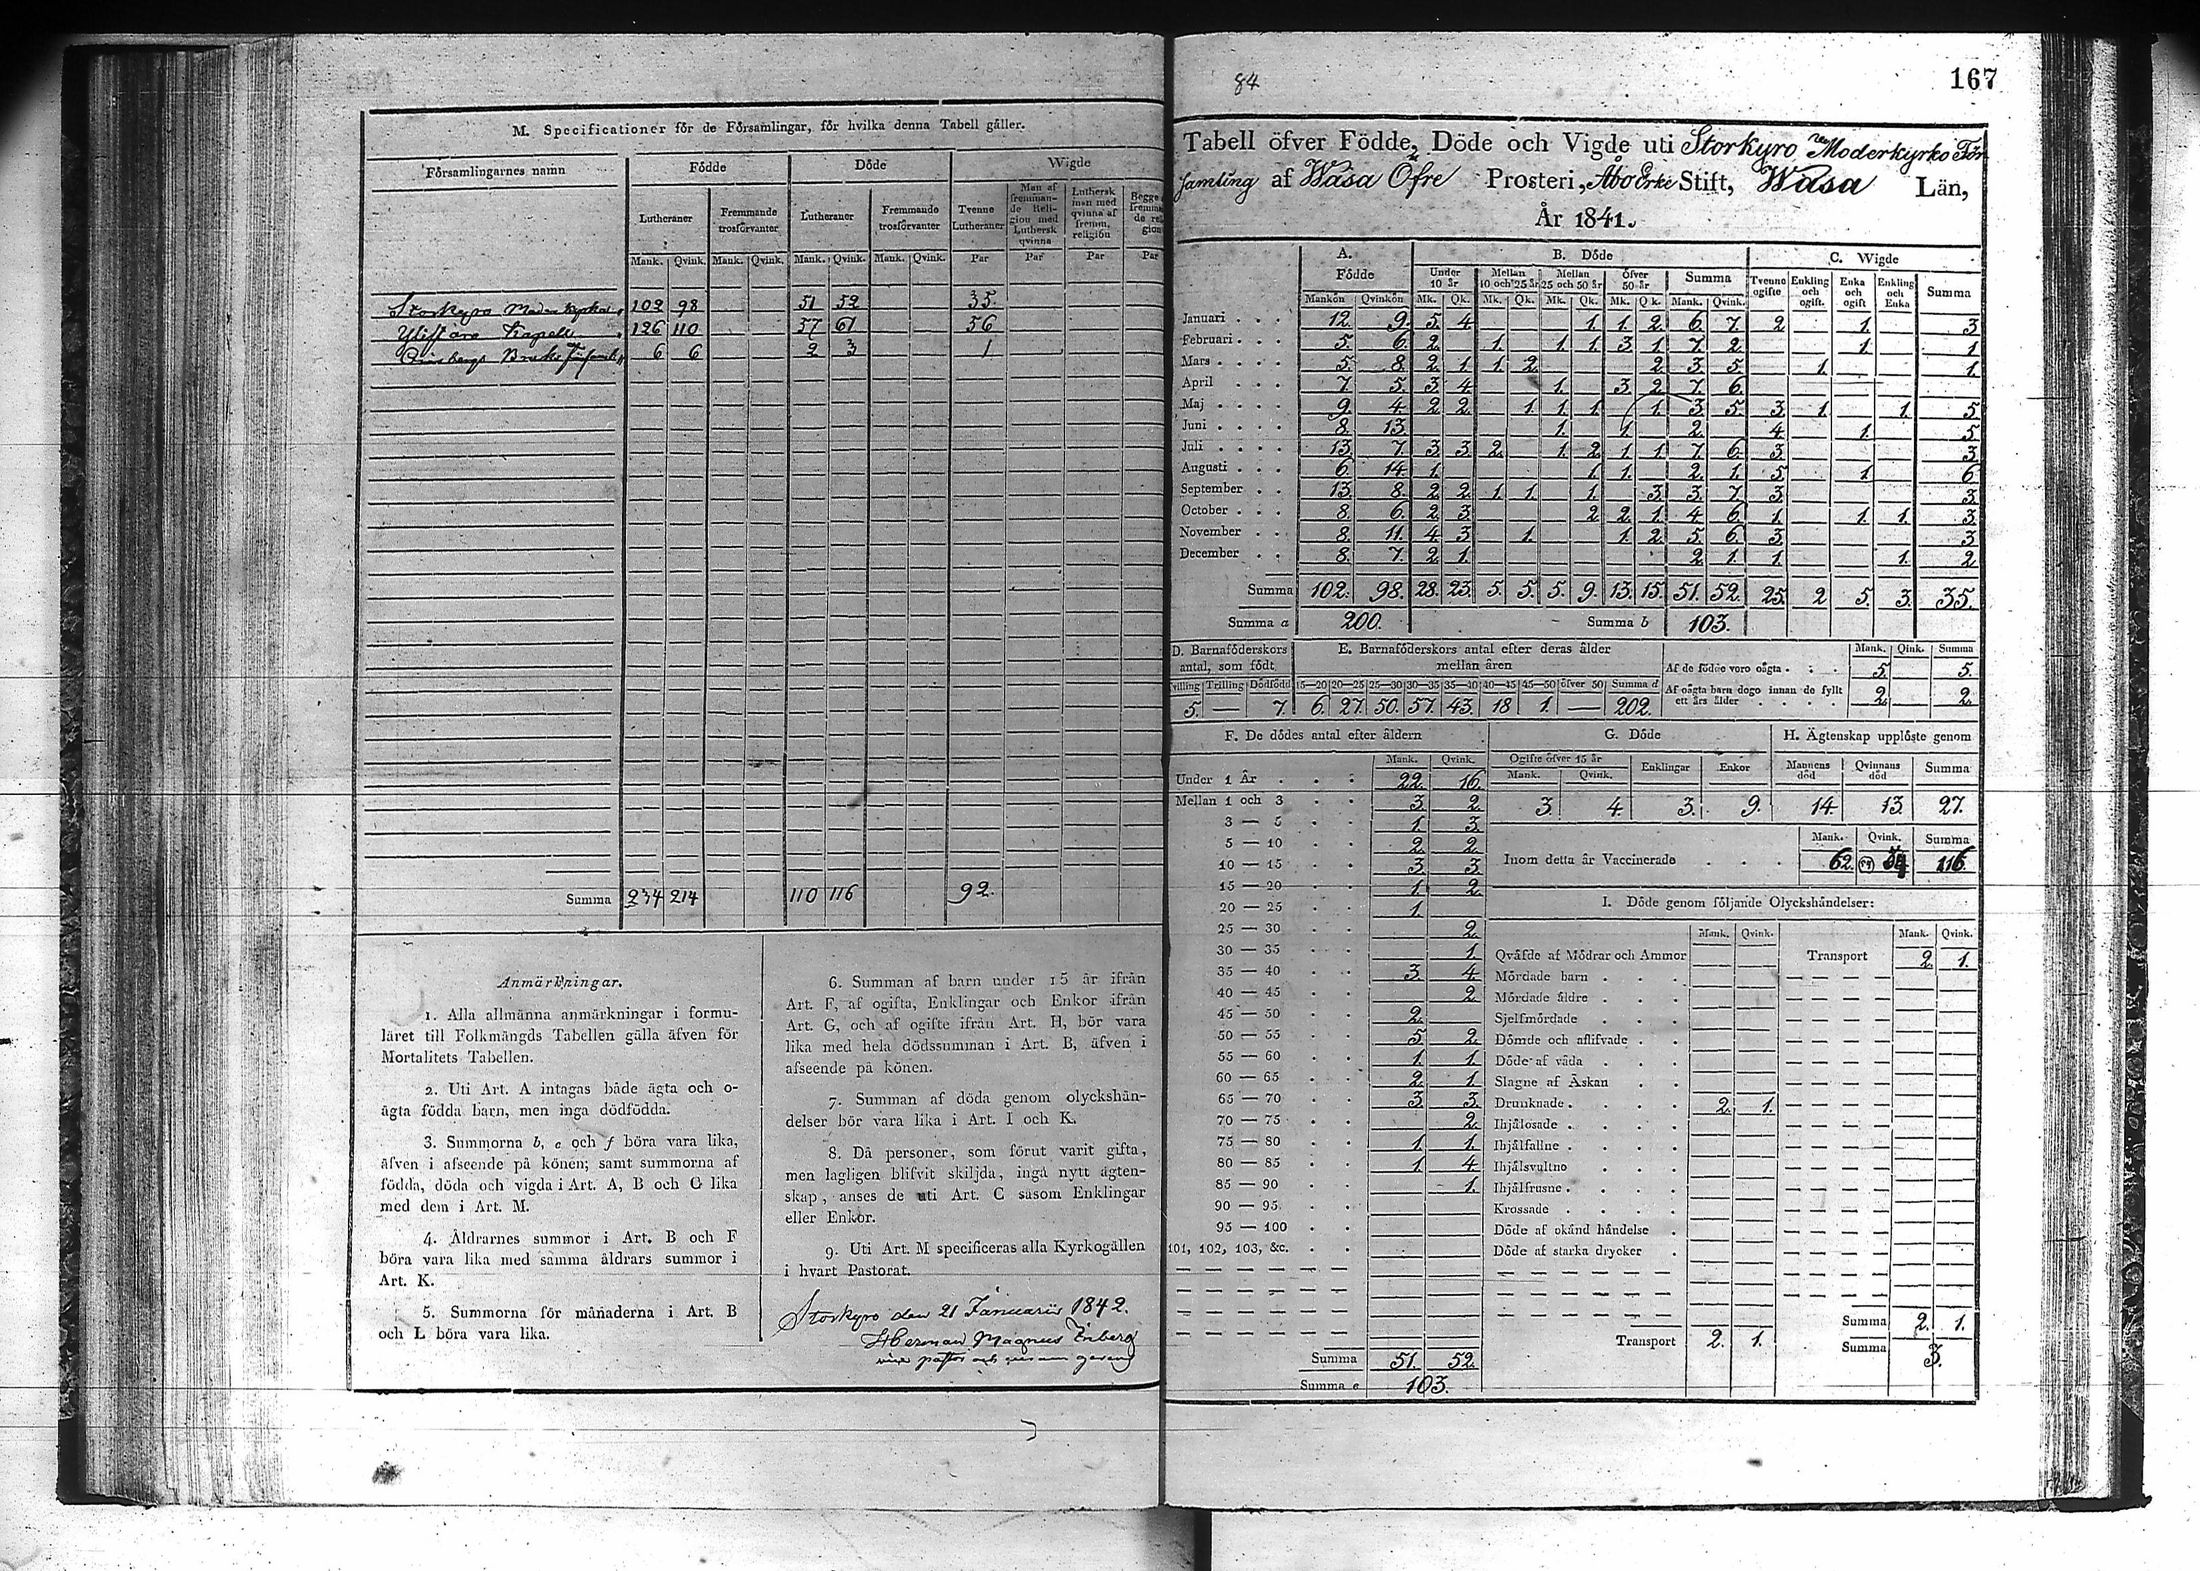 M. Specificationer för de Församlingar, för hvilka denna Tabell gäller.
Församlingarnes namn | Födde | Döde | Wigde
Lutheraner | Fremmande trosförvanter | Lutheraner | Fremmande trosförvanter | Tvenne Lutheraner | Man af fremmande Religion med Luthersk qvinna | Luthersk man med qvinna af fremm. religion | Begge fremmande religion
Mank. | Qvink. | Mank. | Qvink. | Mank. | Qvink. | Mank. | Qvink. | Par | Par | Par | Par
Storkyro Moderkyrka 102 98 51 52 35.
Ylistaro Kapell 126 110 57 61 56
Bruks 6 6 2 3 1
Summa 234 214 110 116 92.
Anmärkningar.
1. Alla allmänna anmärkningar i formu-
läret till Folkmängds Tabellen gälla äfven för
Mortalitets Tabellen.
2. Uti Art. A intagas både ägta och o-
ägta födda barn, men inga dödfödda.
3. Summorna b, e och f böra vara lika,
äfven i afseende på könen; samt summorna af
födda, döda och vigda i Art. A, B och C lika
med dem i Art. M.
4. Åldrarnes summor i Art. B och F
böra vara lika med samma åldrars summor i
Art. K.
5. Summorna för månaderna i Art. B
och L böra vara lika.
6. Summan af barn under 15 år ifrån
Art. F, af ogifta, Enklingar och Enkor ifrån
Art. G, och af ogifte ifrån Art. H, bör vara
lika med hela dödssumman i Art. B, äfven i
afseende på könen.
7. Summan af döda genom olyckshän-
delser bör vara lika i Art. I och K.
8. Då personer, som förut varit gifta,
men lagligen blifvit skiljda, ingå nytt ägten-
skap, anses de uti Art. C såsom Enklingar
eller Enkor.
9. Uti Art. M specificeras alla Kyrkogällen
i hvart Pastorat.
Storkyro den 21 Januarii 1842.
Herman Magnus Enberg
vice pastor
84
167
Tabell öfver Födde, Döde och Vigde uti Storkyro Moderkyrko För
samling af Wasa Öfre Prosteri, Åbo Erke Stift, Wasa Län,
År 1841.
A. Födde | B. Döde | C. Wigde
Under 10 år | Mellan 10 och 25 år | Mellan 25 och 50 år | Öfver 50 år | Summa | Tvenne ogifte | Enkling och ogift. | Enka och ogift | Enkling och Enka | Summa
Mankön | Qvinkön | Mk. | Qk. | Mk. | Qk. | Mk. | Qk. | Mk. | Qk. | Mank. | Qvink.
Januari 12. 9. 5. 4. 1. 1. 2. 6. 7. 2 1. 3
Februari 5. 6. 2. 1. 1. 1. 3. 1. 7. 2. 1. 1
Mars 5. 8. 2. 1. 1. 2. 2. 3. 5. 1. 1.
April 7. 5. 3. 4. 1. 3. 2. 7. 6.
Maj 9. 4. 2. 2. 1. 1. 1. 1. 3. 5. 3. 1. 1. 5.
Juni 8. 13. 1. 1. 2. 4. 1. 5.
Juli 13. 7. 3. 3. 2. 1. 2. 1. 1. 7. 6. 3. 3.
Augusti 6. 14. 1. 1. 1. 2. 1. 5. 1. 6.
September 13. 8. 2. 2. 1. 1. 1. 3. 3. 7. 3. 3.
October 8. 6. 2. 3. 2. 2. 1. 4. 6. 1. 1. 1. 3.
November 8. 11. 4. 3. 1. 1. 2. 5. 6. 3. 3.
December 8. 7. 2. 1. 2. 1. 1. 1. 2.
Summa 102. 98. 28. 23. 5. 5. 5. 9. 13. 15. 51. 52. 25. 2 5. 3. 35.
Summa a 200. Summa b 103.
D. Barnaföderskors antal, som födt
E. Barnaföderskors antal efter deras ålder mellan åren
Mank. | Qink. | Summa
Af de födde voro oägta 5. 5.
Tvilling | Trilling | Dödfödd | 15—20 | 20—25 | 25—30 | 30—35 | 35—40 | 40—45 | 45—50 | öfver 50 | Summa d
Af oägta barn dogo innan de fyllt ett års ålder 2. 2.
5. — 7. 6. 27. 50. 57. 43. 18 1. — 202.
F. De dödes antal efter åldern
Mank. | Qvink.
Under 1 År 22. 16.
Mellan 1 och 3 3. 2.
3 — 5 1. 3.
5 — 10 2. 2.
10 — 15 3. 3.
15 — 20 1. 2.
20 — 25 1.
25 — 30 2.
30 — 35 1.
35 — 40 3. 4.
40 — 45 2
45 — 50 2.
50 — 55 5. 2.
55 — 60 1. 1.
60 — 65 2. 1.
65 — 70 3. 3.
70 — 75 2.
75 — 80 1. 1.
80 — 85 1 4.
85 — 90 1.
90 — 95
95 — 100
101, 102, 103, &c.
Summa 51. 52.
Summa e 103.
G. Döde | H. Ägtenskap upplöste genom
Ogifte öfver 15 år | Enklingar | Enkor | Mannens död | Qvinnans död | Summa
Mank. | Qvink.
3. 4. 3. 9. 14. 13. 27.
Mank. | Qvink. | Summa
Inom detta år Vaccinerade 62. 54 116.
I. Döde genom följande Olyckshändelser:
Mank. | Qvink. | Mank. | Qvink.
Qväfde af Mödrar och Ammor | Transport 2. 1.
Mördade barn
Mördade äldre
Sjelfmördade
Dömde och aflifvade
Döde af våda
Slagne af Åskan
Drunknade 2. 1.
Ihjälosade
Ihjälfallne
Ihjälsvultne
Ihjälfrusne
Krossade
Döde af okänd händelse
Döde af starka drycker
Summa 2. 1.
Transport 2. 1. Summa 3.